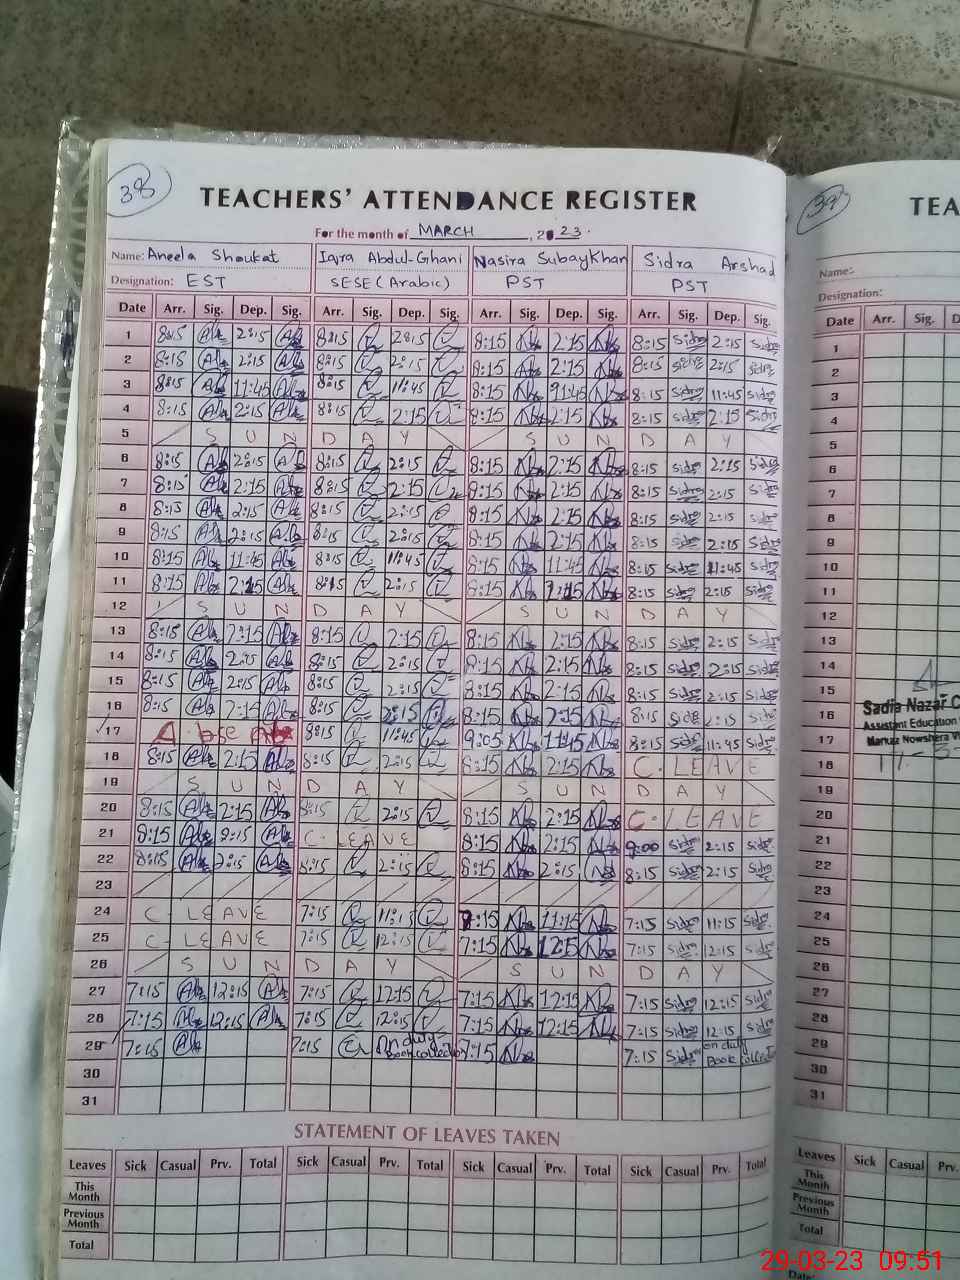 38
TEACHERS' ATTENDANCE REGISTER
For the month of MARCH, 2023.
Name: Aneela Shoukat Iqra Abdul-Ghani Nasira SubayKhan Sidra Arshad
Designation: EST SESE (Arabic) PST PST
Date Arr. Sig. Dep. Sig. Arr. Sig. Dep. Sig. Arr. Sig. Dep. Sig. Arr. Sig. Dep. Sig.
1 8:15 2:15 8:15 2:15 8:15 2:15 8:15 Sidra 2:15 Sidra
2 8:15 2:15 8:15 2:15 8:15 2:15 8:15 Sidra 2:15 Sidra
3 8:15 11:45 8:15 11:45 8:15 11:45 8:15 Sidra 11:45 Sidra
4 8:15 2:15 8:15 2:15 8:15 2:15 8:15 Sidra 2:15 Sidra
5 S U N D A Y S U N D A Y
6 8:15 2:15 8:15 2:15 8:15 2:15 8:15 Sidra 2:15 Sidra
7 8:15 2:15 8:15 2:15 8:15 2:15 8:15 Sidra 2:15 Sidra
8 8:15 2:15 8:15 2:15 8:15 2:15 8:15 Sidra 2:15 Sidra
9 8:15 2:15 8:15 2:15 8:15 2:15 8:15 Sidra 2:15 Sidra
10 8:15 11:45 8:15 11:45 8:15 11:45 8:15 Sidra 11:45 Sidra
11 8:15 2:15 8:15 2:15 8:15 2:15 8:15 Sidra 2:15 Sidra
12 S U N D A Y S U N D A Y
13 8:15 2:15 8:15 2:15 8:15 2:15 8:15 Sidra 2:15 Sidra
14 8:15 2:15 8:15 2:15 8:15 2:15 8:15 Sidra 2:15 Sidra
15 8:15 2:15 8:15 2:15 8:15 2:15 8:15 Sidra 2:15 Sidra
16 8:15 2:15 8:15 2:15 8:15 2:15 8:15 Sidra 2:15 Sidra
17 8:15 11:45 9:05 11:45 8:15 Sidra 11:45 Sidra
18 8:15 2:15 8:15 2:15 8:15 2:15 C. LEAVE
19 S U N D A Y S U N D A Y
20 8:15 2:15 8:15 2:15 8:15 2:15 C. LEAVE
21 8:15 2:15 C. LEAVE 8:15 2:15 9:00 Sidra 2:15 Sidra
22 8:15 2:15 8:15 2:15 8:15 2:15 8:15 Sidra 2:15 Sidra
23
24 C. LEAVE 7:15 11:15 7:15 11:15 7:15 Sidra 11:15 Sidra
25 C. LEAVE 7:15 12:15 7:15 12:15 7:15 Sidra 12:15 Sidra
26 S U N D A Y S U N D A Y
27 7:15 12:15 7:15 12:15 7:15 12:15 7:15 Sidra 12:15 Sidra
28 7:15 12:15 7:15 12:15 7:15 12:15 7:15 Sidra 12:15 Sidra
29 7:15 7:15 On duty Book collection 7:15 7:15 Sidra on duty Book collection
30
31
STATEMENT OF LEAVES TAKEN
Leaves Sick Casual Prv. Total Sick Casual Prv. Total Sick Casual Prv. Total Sick Casual Prv. Total
This Month
Previous Month
Total
39
TEA
Name:
Designation:
Date Arr. Sig. D
1
2
3
4
5
6
7
8
9
10
11
12
13
14
15
16
17
18
19
20
21
22
23
24
25
26
27
28
29
30
31
Sadia Nazar
Assistant Education
Markaz Nowshera
Leaves Sick Casual Prv.
This Month
Previous Month
Total
Date:
29-03-23 09.51